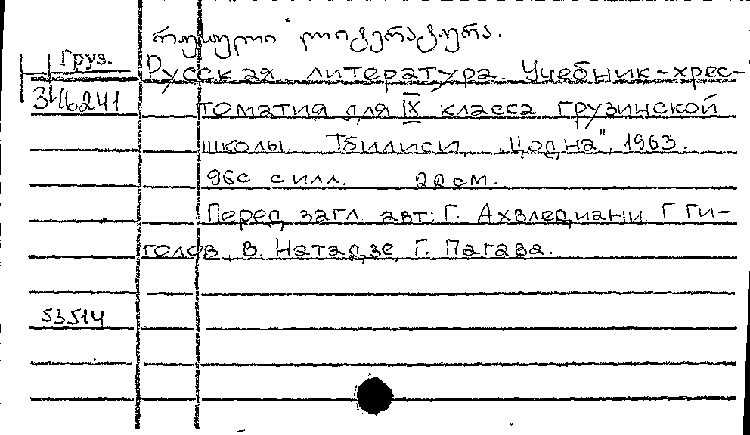 რუსული ლიტერატურა.
Груз.
Русская литература Учебник-хрес-
3/16241
томатия для IX класса грузинской
школы. Тбилиси, "Цодна", 1963.
96с с илл. 22 см.
Перед загл. авт: Г. Ахвледиани, Г. Ги-
голов, В. Натадзе, Г. Пагава.
53514